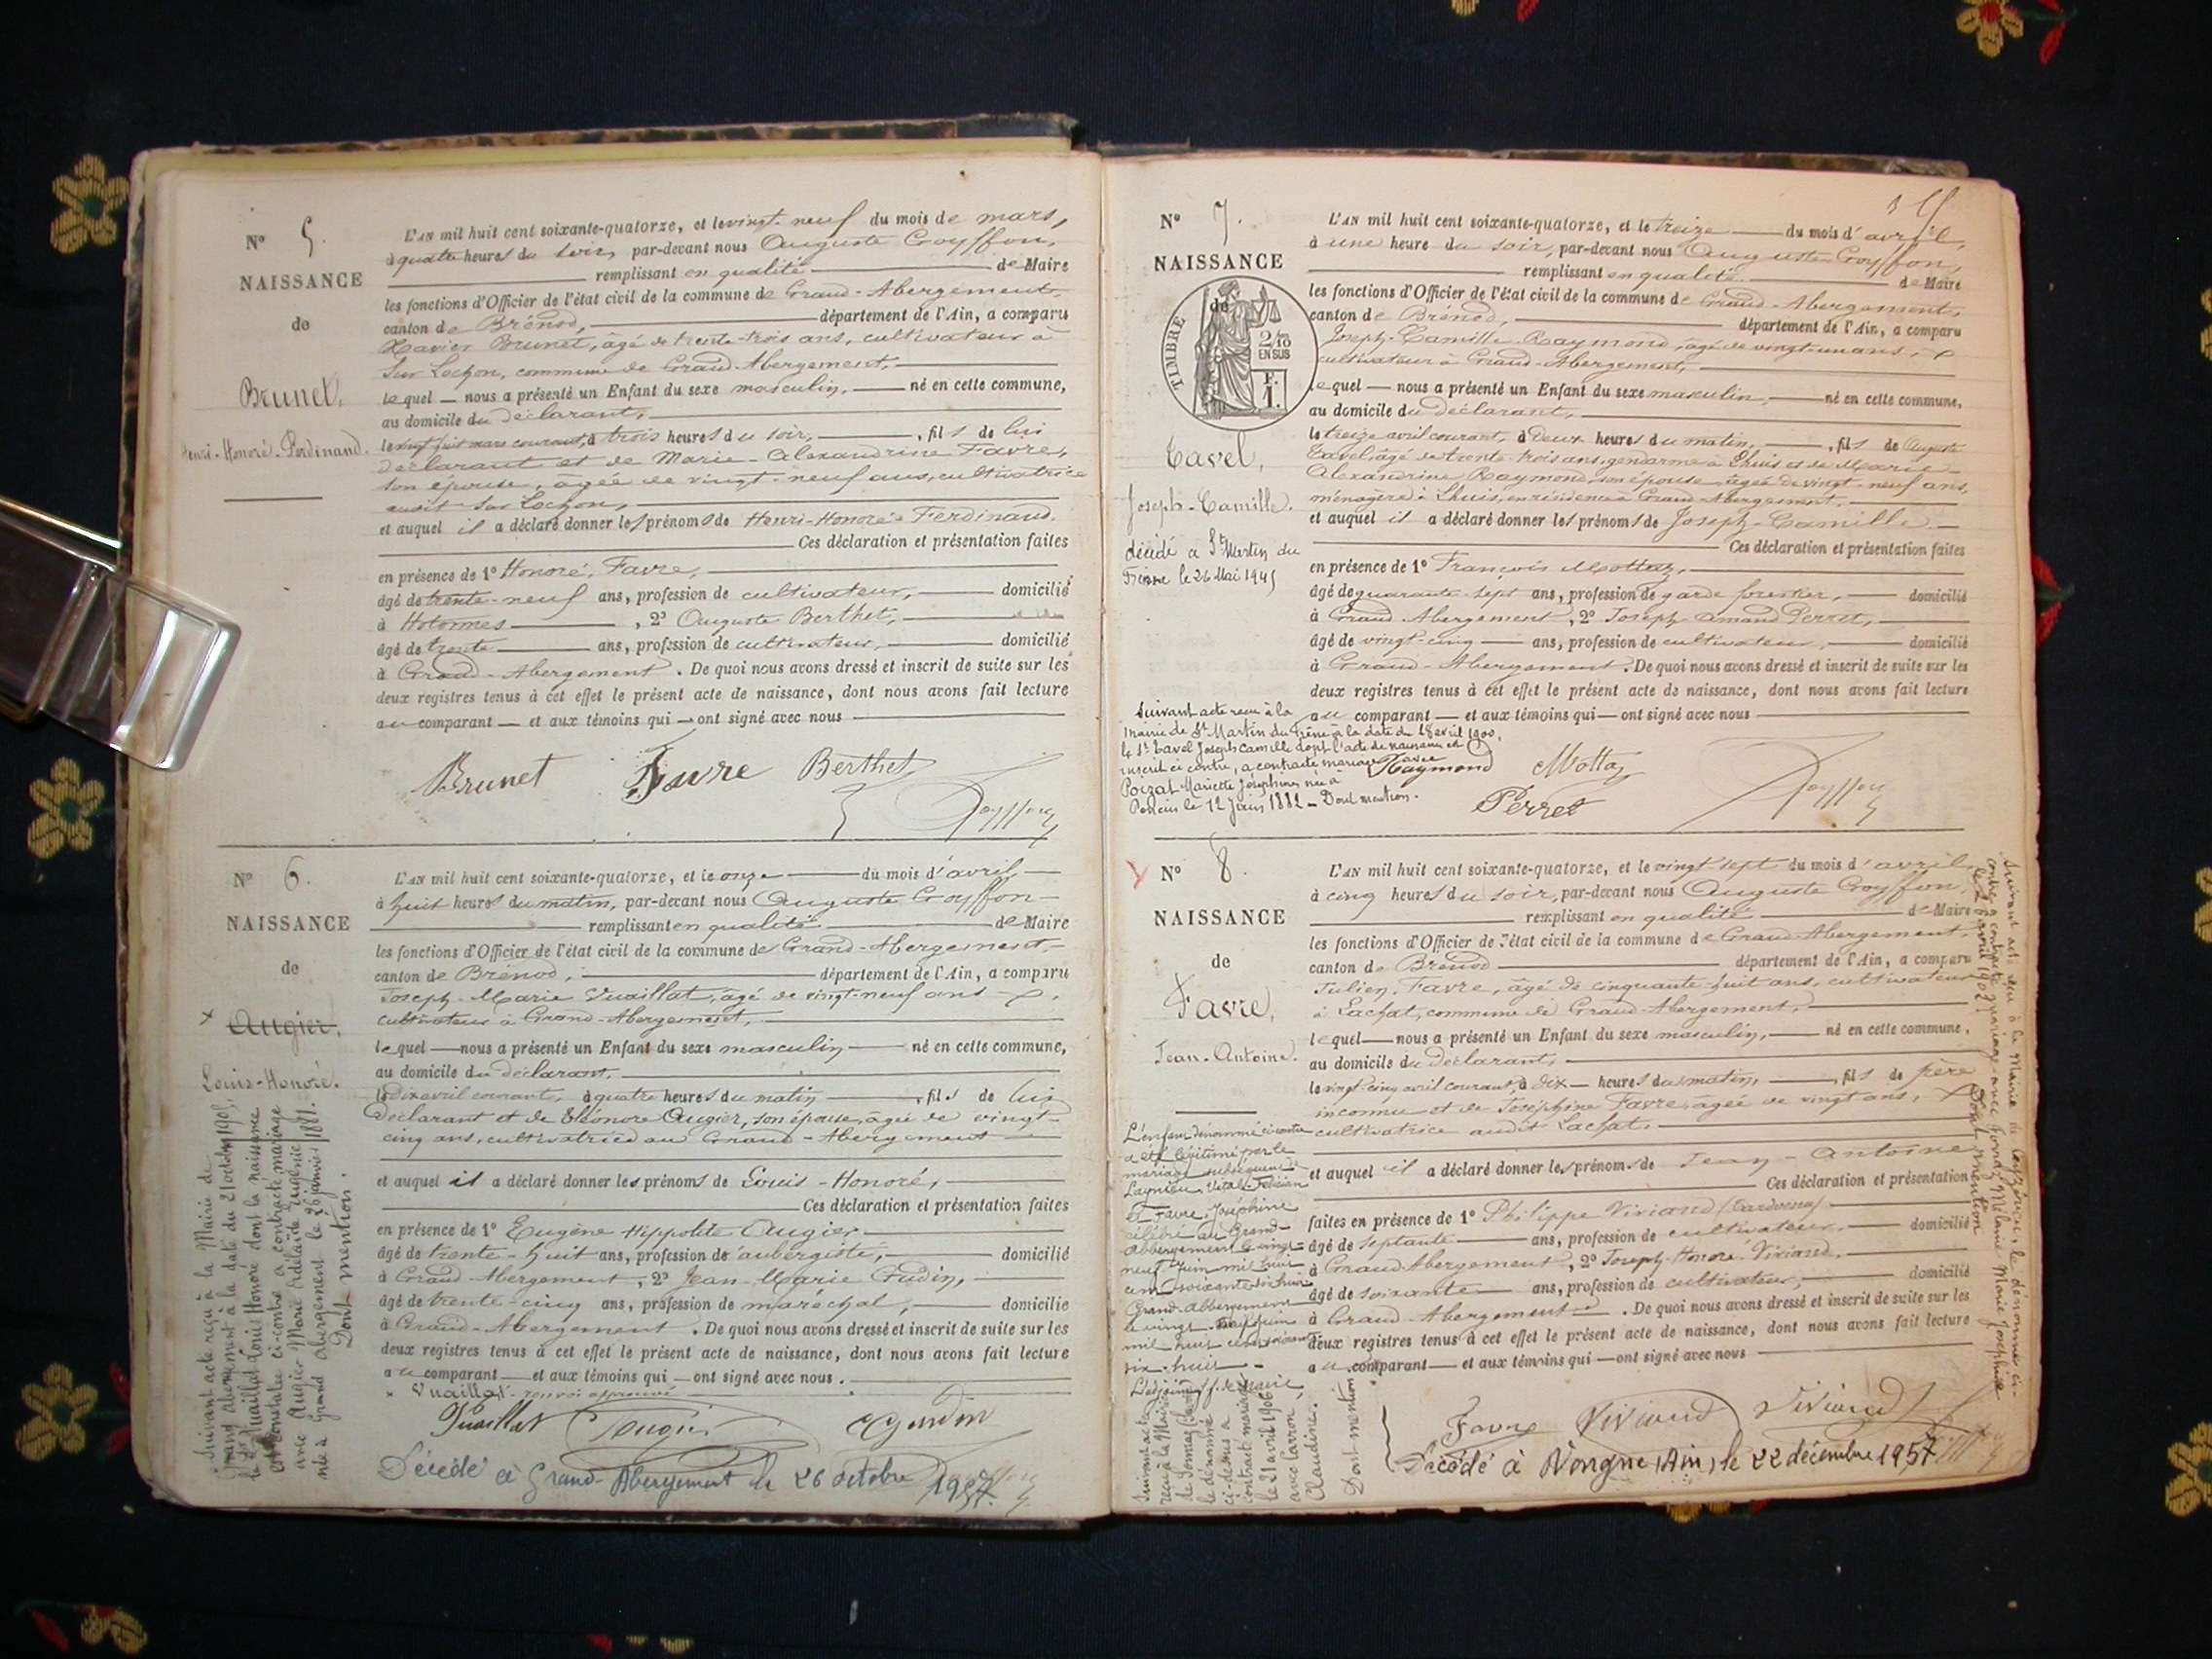 N° 5.
NAISSANCE
de
Brunet,
Henri-Honoré-Ferdinand.
L'AN mil huit cent soixante-quatorze, et le vingt neuf du mois de mars,
à quatre heures du soir, par-devant nous Auguste Croyffon,
remplissant en qualité de Maire
les fonctions d'Officier de l'état civil de la commune de Grand-Abergement,
canton de Brénod, département de l'Ain, a comparu
Xavier Brunet, âgé de trente-trois ans, cultivateur à
Sur Lochon, commune de Grand-Abergement,
lequel nous a présenté un Enfant du sexe masculin, né en cette commune,
au domicile du déclarant,
le vingt huit mars courant, à trois heures du soir, , fils de lui
déclarant et de Marie-Alexandrine Favre,
son épouse, âgée de vingt-neuf ans, cultivatrice
audit Sur Lochon,
et auquel il a déclaré donner les prénoms de Henri-Honoré-Ferdinand.
Ces déclaration et présentation faites
en présence de 1° Honoré Favre,
âgé de trente-neuf ans, profession de cultivateur, domicilié
à Hotonnes , 2° Auguste Berthet,
âgé de trente ans, profession de cultivateur, domicilié
à Grand-Abergement. De quoi nous avons dressé et inscrit de suite sur les
deux registres tenus à cet effet le présent acte de naissance, dont nous avons fait lecture
au comparant et aux témoins qui ont signé avec nous
Brunet Favre Berthet
Croyffon
N° 6.
NAISSANCE
de
x Augier,
Louis-Honoré.
Suivant acte reçu à la Mairie de
Grand Abergement à la date du 21 octobre 1905,
le Sr Vuaillat Louis Honoré dont la naissance
est constatée ci-contre a contracté mariage
avec Augier Marie Adélaïde Eugénie
née à Grand Abergement le 26 janvier 1881.
Dont mention.
L'AN mil huit cent soixante-quatorze, et le onze du mois d'avril,
à huit heures du matin, par-devant nous Auguste Croyffon
remplissant en qualité de Maire
les fonctions d'Officier de l'état civil de la commune de Grand-Abergement,
canton de Brénod, département de l'Ain, a comparu
Joseph-Marie Vuaillat, âgé de vingt-neuf ans
cultivateur à Grand-Abergement,
lequel nous a présenté un Enfant du sexe masculin né en cette commune,
au domicile du déclarant,
le dix avril courant, à quatre heures du matin , fils de lui
déclarant et de Eléonore Augier, son épouse, âgée de vingt-
cinq ans, cultivatrice au Grand-Abergement
et auquel il a déclaré donner les prénoms de Louis-Honoré,
Ces déclaration et présentation faites
en présence de 1° Eugène Hippolite Augier
âgé de trente-huit ans, profession d'aubergiste, domicilié
à Grand-Abergement, 2° Jean-Marie Gudin,
âgé de trente-cinq ans, profession de maréchal, domicilié
à Grand-Abergement. De quoi nous avons dressé et inscrit de suite sur les
deux registres tenus à cet effet le présent acte de naissance, dont nous avons fait lecture
au comparant et aux témoins qui ont signé avec nous.
x Vuaillat - renvoi approuvé
Vuaillat Augier Gudin
Décédé à Grand-Abergement le 26 octobre 1957.
N° 7.
NAISSANCE
de
TIMBRE
2/10
EN SUS
F.
1.
Tavel,
Joseph-Camille.
décédé à St Martin du
Frêne le 26 Mai 1945
Suivant acte reçu à la
mairie de St Martin du Frêne à la date du 18 avril 1900,
le Sr Tavel Joseph Camille dont l'acte de naissance est
inscrit ci contre, a contracté mariage avec
Poizat Mariette Joséphine née à
Poncin le 12 Juin 1882 - Dont mention.
L'AN mil huit cent soixante-quatorze, et le treize du mois d'avril,
à une heure du soir, par-devant nous Auguste Croyffon,
remplissant en qualité de Maire
les fonctions d'Officier de l'état civil de la commune de Grand-Abergement,
canton de Brénod, département de l'Ain, a comparu
Joseph-Camille Raymond, âgé de vingt-un ans,
cultivateur à Grand-Abergement,
lequel nous a présenté un Enfant du sexe masculin, né en cette commune,
au domicile du déclarant,
le treize avril courant, à deux heures du matin, , fils de Auguste
Tavel, âgé de trente-trois ans, gendarme à Lhuis et de Marie-
Alexandrine Raymond, son épouse âgée de vingt-neuf ans,
ménagère à Lhuis, en résidence à Grand-Abergement.
et auquel il a déclaré donner les prénoms de Joseph-Camille
Ces déclaration et présentation faites
en présence de 1° François Mottaz,
âgé de quarante-sept ans, profession de garde forestier, domicilié
à Grand-Abergement, 2° Joseph-Amand Perret,
âgé de vingt-cinq ans, profession de cultivateur, domicilié
à Grand-Abergement. De quoi nous avons dressé et inscrit de suite sur les
deux registres tenus à cet effet le présent acte de naissance, dont nous avons fait lecture
au comparant et aux témoins qui ont signé avec nous
Raymond Mottaz
Perret Croyffon
N° 8.
NAISSANCE
de
Favre,
Jean-Antoine.
L'enfant dénommé ci-contre
a été légitimé par le
mariage subséquent de
Laynieu, Vital-Félicien
et Favre, Joséphine
célébré au Grand-
Abbergement le vingt-
neuf Juin mil huit
cent soixante dix huit
Grand-Abbergement
le vingt-neuf Juin
mil huit cent soixante
dix-huit
Suivant acte
reçu à la Mairie
le dénommé
ci-dessus a
contracté mariage
le 21 avril 1906
avec Carron
Claudine.
Dont mention
L'AN mil huit cent soixante-quatorze, et le vingt-sept du mois d'avril,
à cinq heures du soir, par-devant nous Auguste Croyffon,
remplissant en qualité de Maire
les fonctions d'Officier de l'état civil de la commune de Grand-Abergement,
canton de Brénod département de l'Ain, a comparu
Julien Favre, âgé de cinquante-huit ans, cultivateur
à Lachat, commune de Grand-Abergement,
lequel nous a présenté un Enfant du sexe masculin, né en cette commune,
au domicile du déclarant,
le vingt-cinq avril courant, à dix heures du matin, , fils de père
inconnu et de Joséphine Favre, âgée de vingt ans,
cultivatrice audit Lachat.
et auquel il a déclaré donner les prénoms de Jean-Antoine
Ces déclaration et présentation
faites en présence de 1° Philippe Viviand
âgé de septante ans, profession de cultivateur, domicilié
à Grand-Abergement, 2° Joseph-Honoré Viviand,
âgé de soixante ans, profession de cultivateur, domicilié
à Grand-Abergement. De quoi nous avons dressé et inscrit de suite sur les
deux registres tenus à cet effet le présent acte de naissance, dont nous avons fait lecture
au comparant et aux témoins qui ont signé avec nous
Favre Viviand Viviand
Décédé à Vongne (Ain) le 22 décembre 1957
Suivant acte reçu à la Mairie de le dénommé ci-
contre a contracté mariage avec Mélanie Marie Joséphine
avril 1902
Dont mention